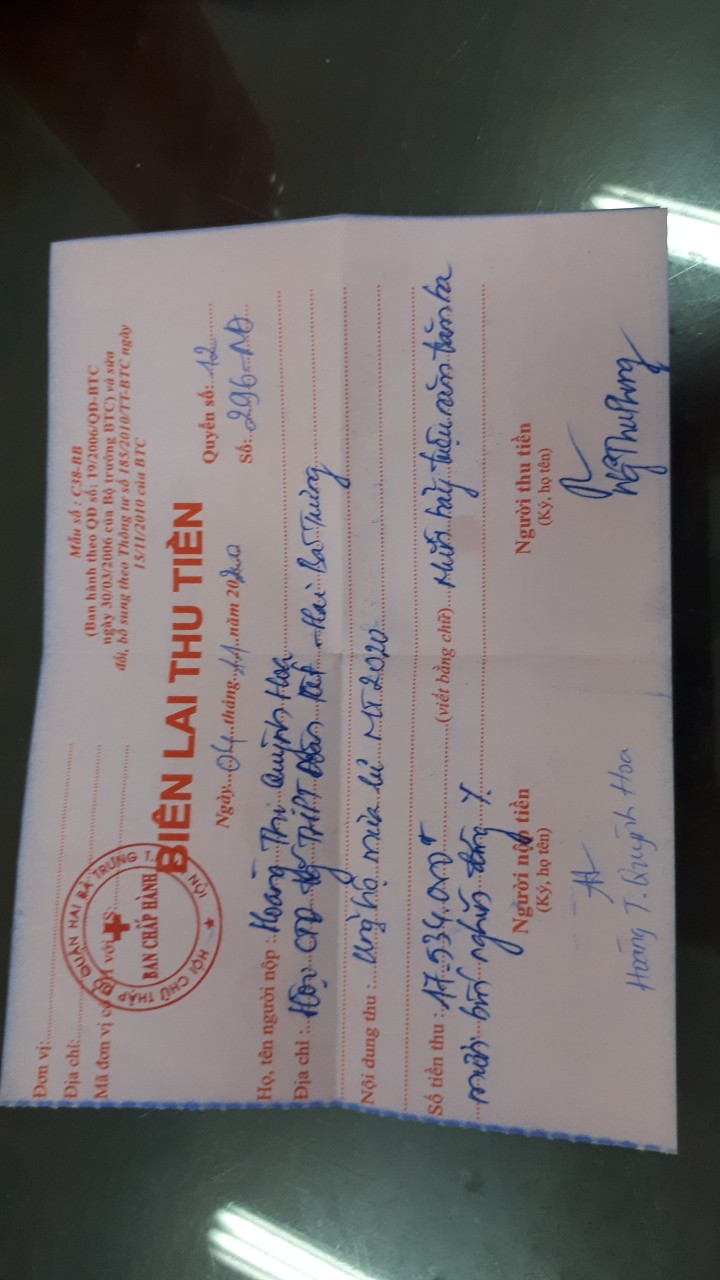 Đơn vị:
Địa chỉ:
Mã đơn vị có với
HỘI CHỮ THẬP ĐỎ QUẬN HAI BÀ TRƯNG T. NỘI
BAN CHẤP HÀNH
Mẫu số : C38-BB
(Ban hành theo QĐ số: 19/2006/QĐ-BTC
ngày 30/03/2006 của Bộ trưởng BTC) và sửa
đổi, bổ sung theo Thông tư số 185/2010/TT-BTC ngày
15/11/2010 của BTC
BIÊN LAI THU TIỀN
Ngày 04 tháng 11 năm 2020
Quyển số: 12
Số: 296-NĐ
Họ, tên người nộp : Hoàng Thị Quỳnh Hoa
Địa chỉ : Hội CTĐ THPT Đoàn Kết - Hai Bà Trưng
Nội dung thu : Ủng hộ mưa lũ MT 2020
Số tiền thu : 17.534.000đ (viết bằng chữ) Mười bảy triệu năm trăm ba
mươi bốn nghìn đồng
Người nộp tiền
(Ký, họ tên)
Hoàng T. Quỳnh Hoa
Người thu tiền
(Ký, họ tên)
Ng Thu Phương